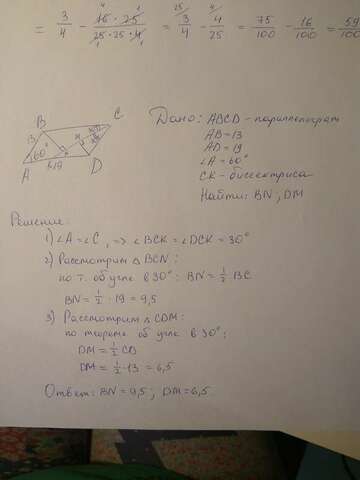 = 3/4 - 16 · 25 / 25 · 25 · 4 = 3/4 - 4/25 = 75/100 - 16/100 = 59/100
B C
13 60° N M
A 19 D
Дано: ABCD - параллелограм
AB = 13
AD = 19
∠A = 60°
CK - биссектриса
Найти: BN, DM
Решение:
1) ∠A = ∠C, => ∠BCK = ∠DCK = 30°
2) Рассмотрим △ BCN:
по т. об угле в 30°: BN = 1/2 BC
BN = 1/2 · 19 = 9,5
3) Рассмотрим △ CDM:
по теореме об угле в 30°:
DM = 1/2 CD
DM = 1/2 · 13 = 6,5
Ответ: BN = 9,5; DM = 6,5.